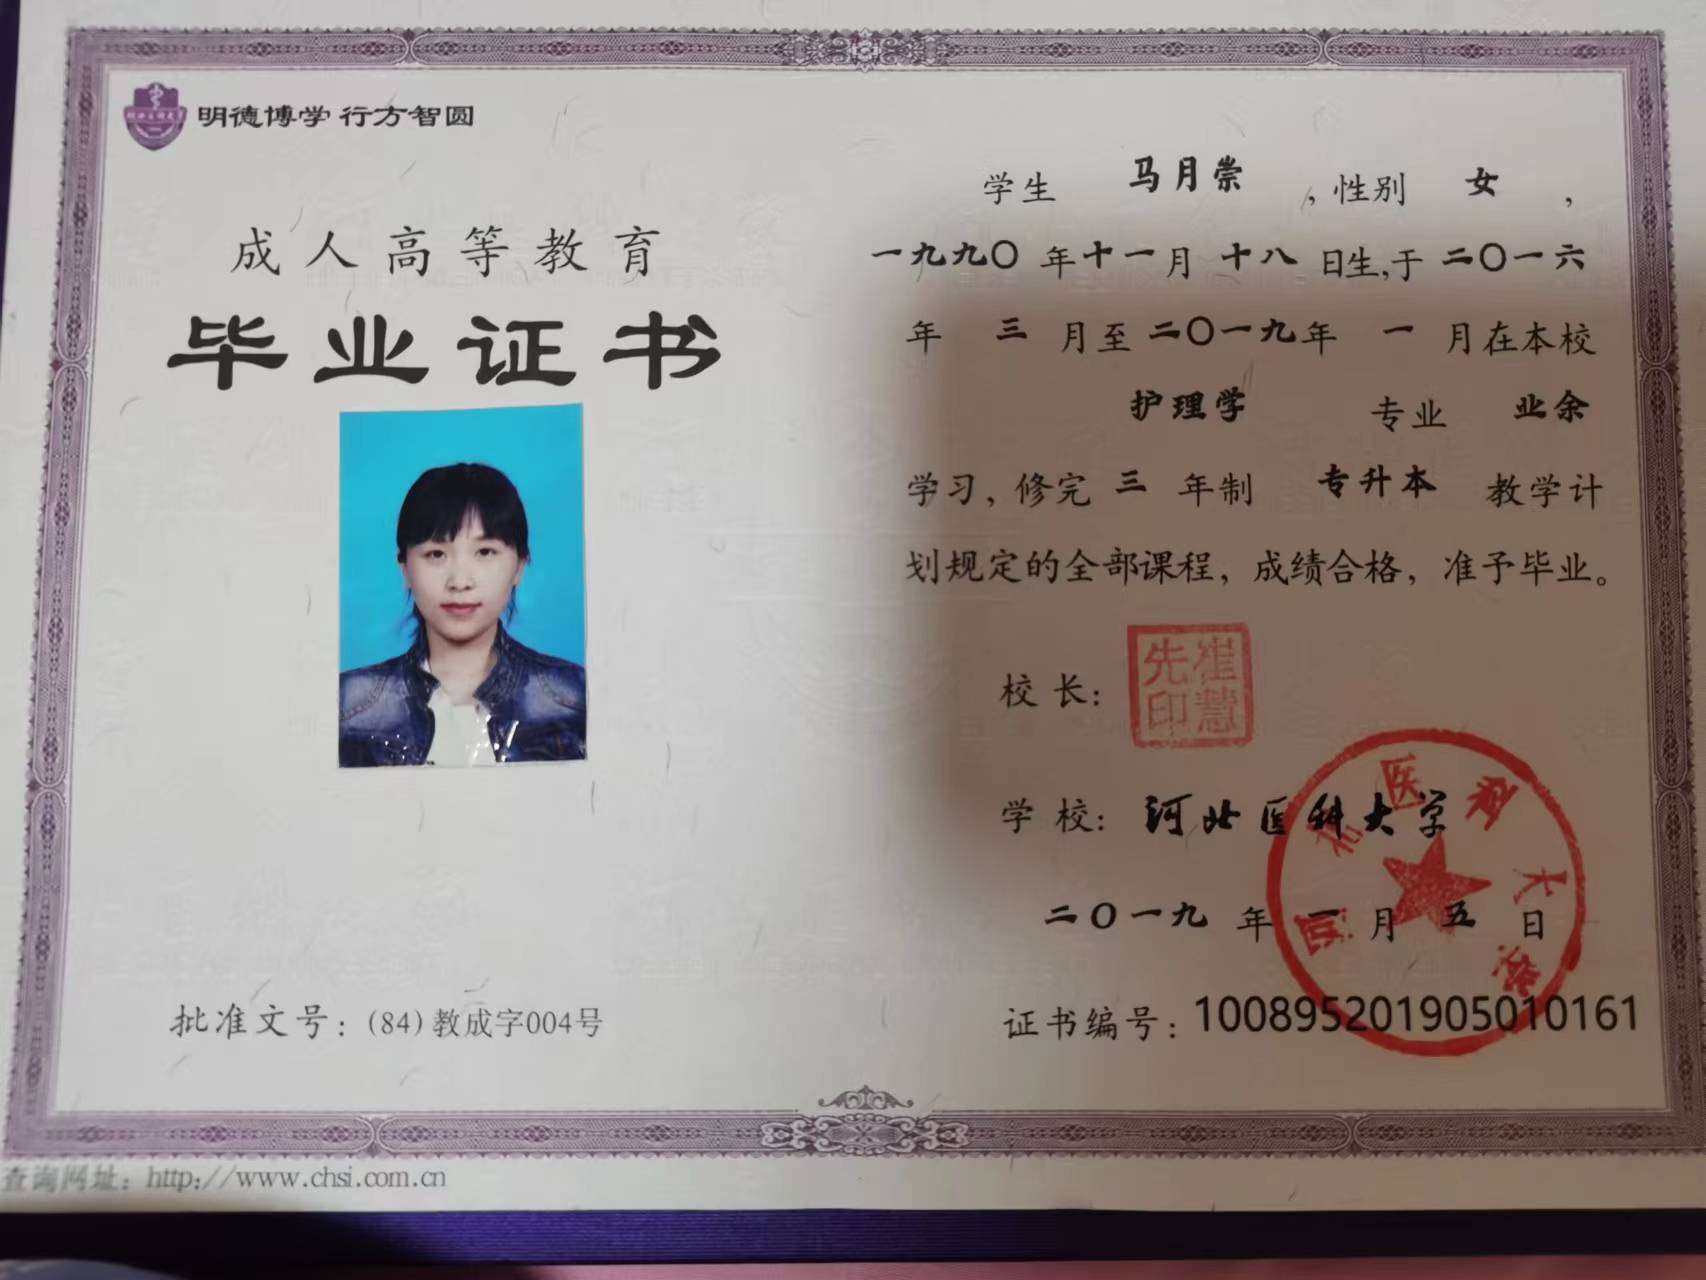 明德博学 行方智圆
成人高等教育
毕业证书
批准文号：(84)教成字004号
学生 马月崇 ，性别 女 ，
一九九〇 年 十一 月 十八 日生，于 二〇一六
年 三 月至 二〇一九 年 一 月在本校
护理学 专业 业余
学习，修完 三 年制 专升本 教学计
划规定的全部课程，成绩合格，准予毕业。
校 长：
崔慧先印
学 校：河北医科大学
河北医科大学
二〇一九 年 一 月 五 日
证书编号：100895201905010161
查询网址：http://www.chsi.com.cn